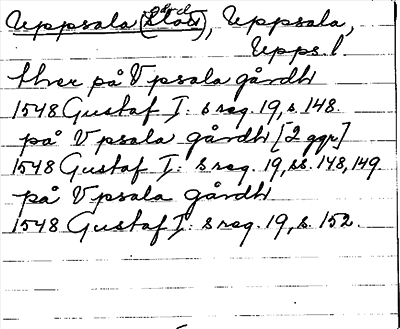 Uppsala (slott), Uppsala,
Upps. l.
ther på Vpsala gårdh
1548 Gustaf I: s reg. 19, s. 148.
på Vpsala gårdh [2 ggr]
1548 Gustaf I: s reg. 19, ss. 148, 149.
på Vpsala gårdh
1548 Gustaf I: s reg. 19, s. 152.